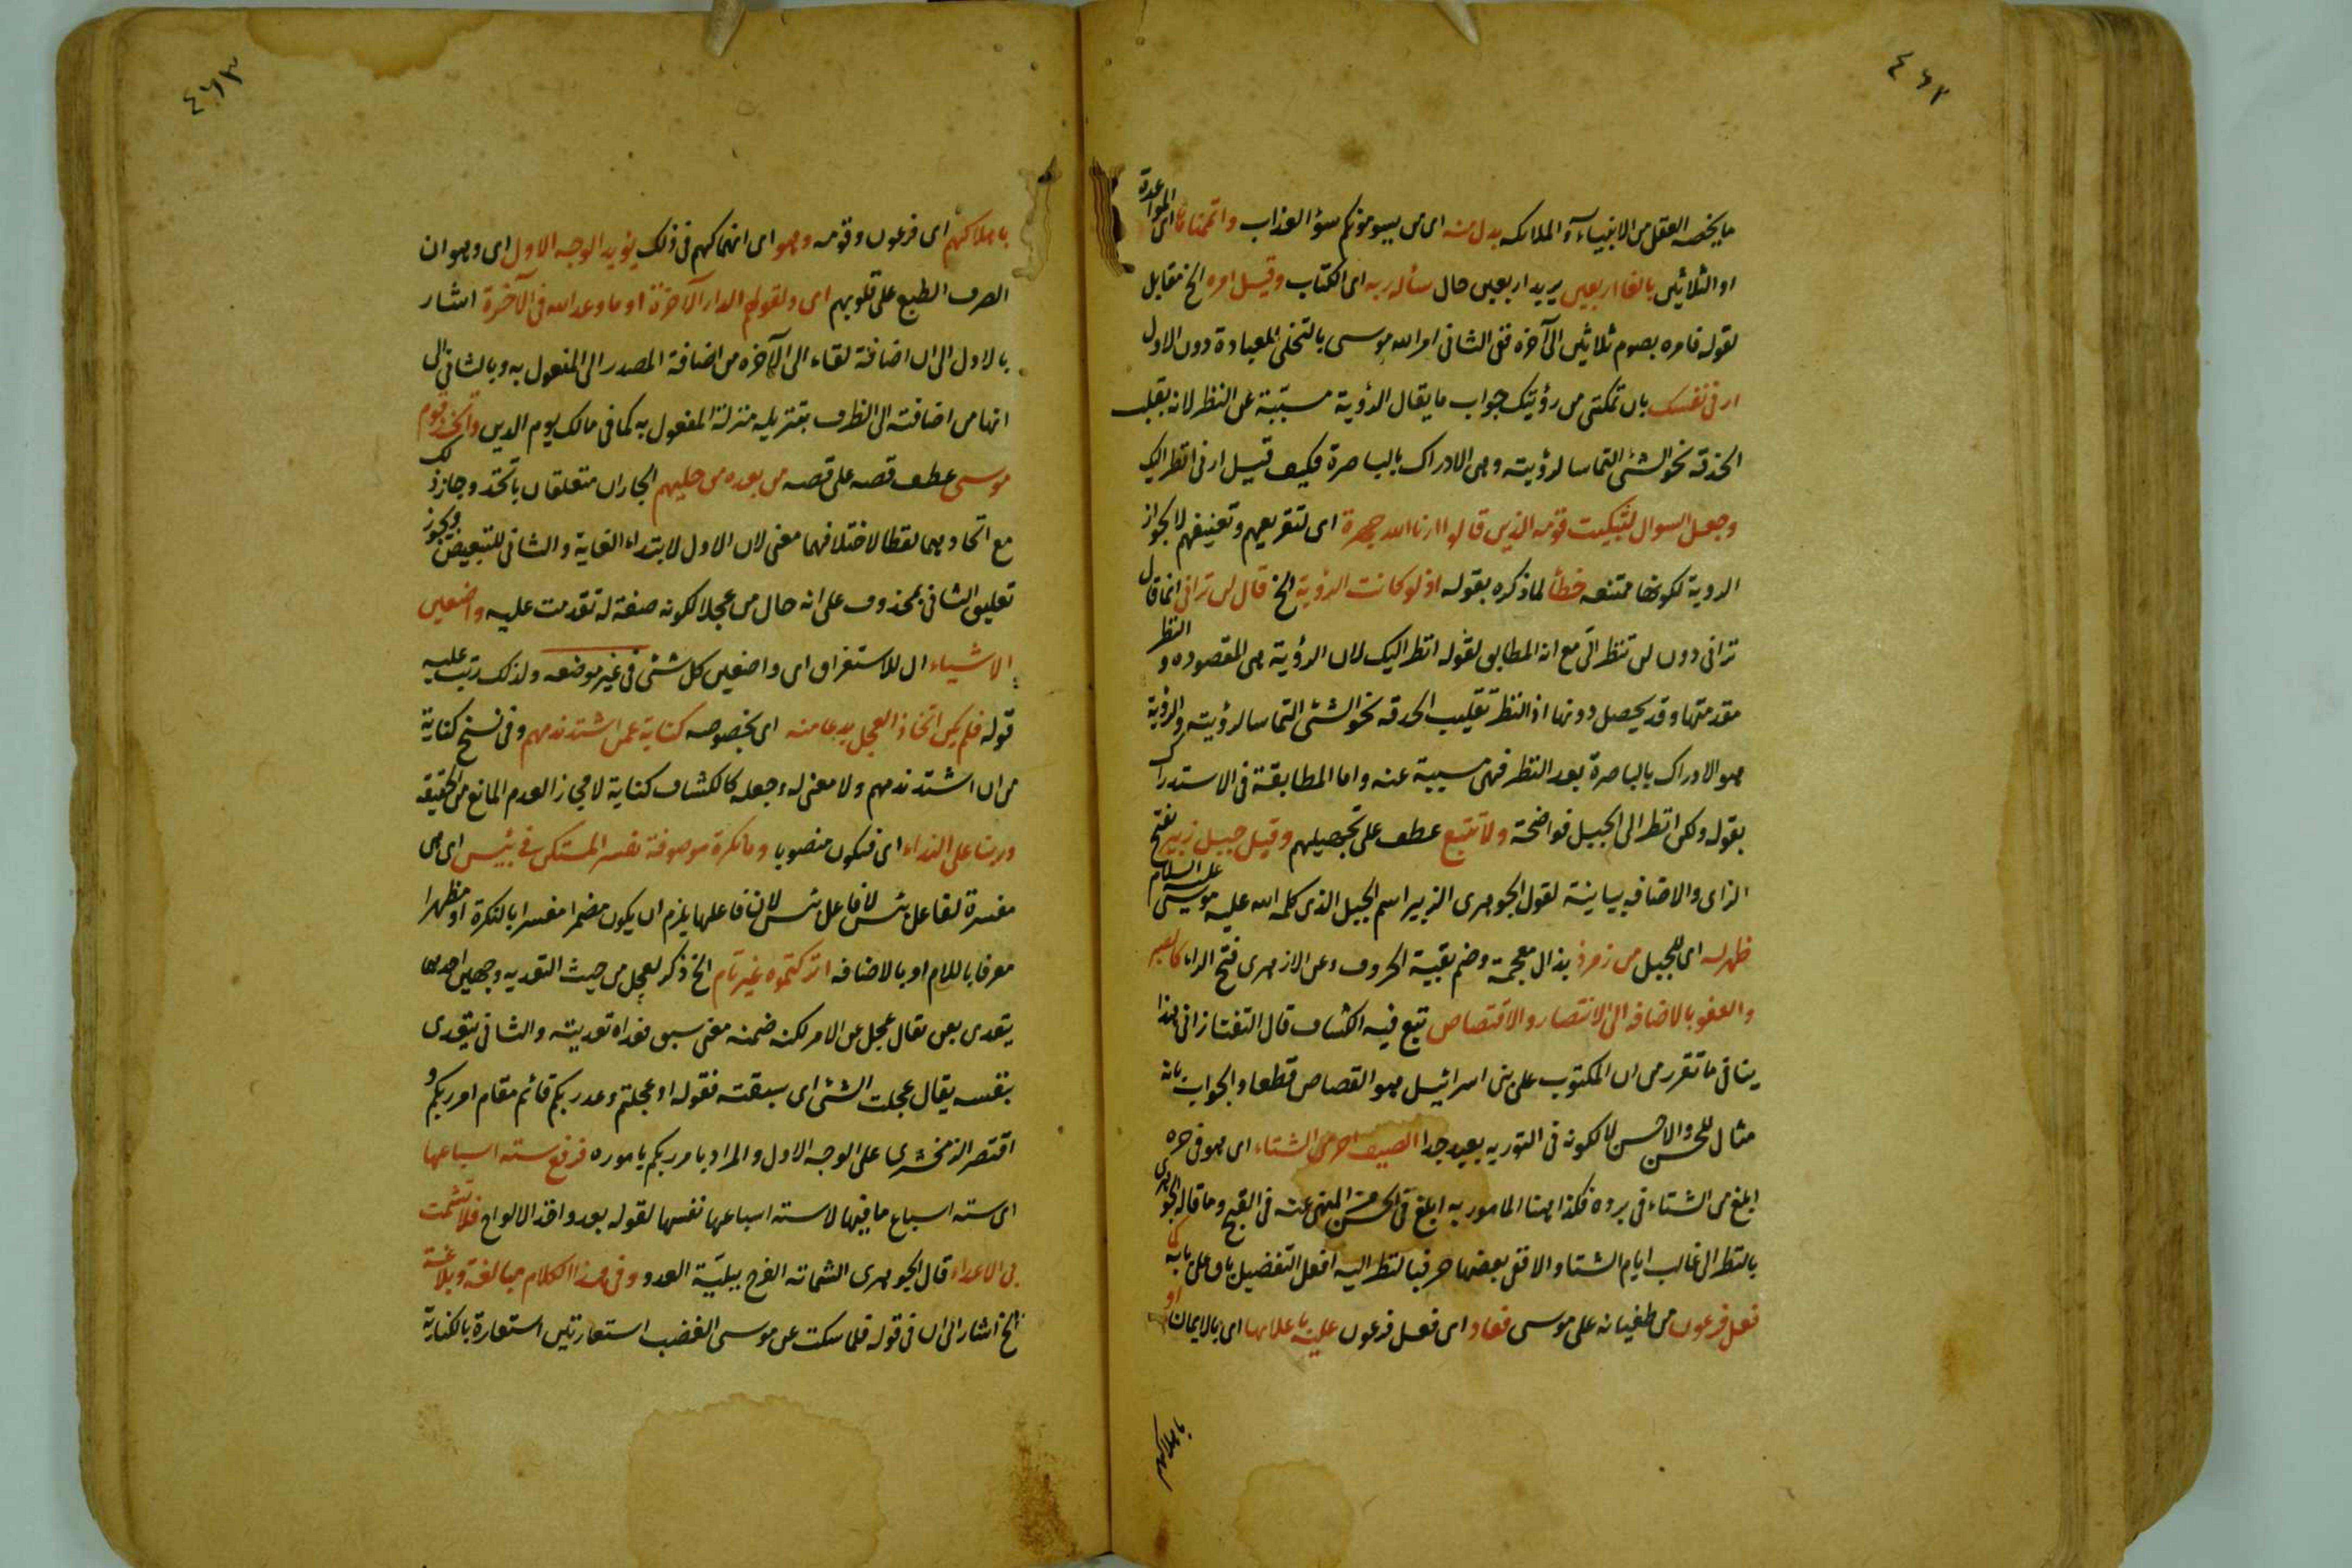 ٤٦٢
ما يخصه العقل من الانبياء والملائكه بدل منه اى من يسومونكم سؤ العذاب واتممناها اى المواعدة
او الثلاثين بالغا اربعين يريد اربعين حال سأله ربه اى الكتاب وقيل امره الخ مقابل
لقوله فامره بصوم ثلاثين الى آخره ففى الثانى امر الله موسى بالتخلى للعبادة دون الاول
ارنى نفسك بان تمكننى من رؤيتك جواب ما يقال الرؤية مسببة عن النظر لانه تقليب
الحدقه نحو الشئ التماسا لرؤيته وهى الادراك بالباصرة فكيف قيل ارنى انظر اليك
وجعل السوال لتبكيت قومه الذين قالوا ارنا الله جهرة اى لتقريعهم وتعنيفهم لا لجواز
الروية لكونها ممتنعه خطأ لما ذكره بقوله اذ لو كانت الرؤية الخ قال لن ترانى انما قال
ترانى دون لن تنظر الىّ مع انه المطابق لقوله انظر اليك لان الرؤية هى المقصوده والنظر
مقدمتها وقد يحصل دونها اذ النظر تقليب الحدقه نحو الشئ التماسا لرؤيته والرؤية
هو الادراك بالباصرة بعد النظر فهى مسببة عنه واما المطابقة فى الاستدراك
بقوله ولكن انظر الى الجبل فواضحة ولا تتبع عطف على تجهيلهم وقيل جبل زبير بفتح
الزاى والاضافه بيانية لقول الجوهرى الزبير اسم الجبل الذى كلم الله عليه موسى عليه السلام
ظهر له اى للجبل من زمرذ بذال معجمة وضم بقية الحروف وعن الازهرى فتح الراء كالصبر
والعفو بالاضافه الى الانتصار والاقتصاص تبع فيه الكشاف قال التفتازانى هذا
ينافى ما تقرر من ان المكتوب على بنى اسرائيل هو القصاص قطعا والجواب بانه
مثال للحسن والاحسن لا لكونه فى التوريه بعيد جدا الصيف احر من الشتاء اى هو فى حره
ابلغ من الشتاء فى برده فكذا هنا المامور به ابلغ فى الحسن من المنهى عنه فى القبح وما قاله الجوهرى
بالنظر الى غالب ايام الشتاء والا ففى بعضها حر فبالنظر اليه افعل التفضيل باق على بابه
فعل فرعون من طغيانه على موسى فعاد اى فعل فرعون عليه باعلامها اى بالايمان او
باهلاكهم
٤٦٣
باهلاكهم اى فرعون وقومه وهو اى انهماكهم فى ذلك يؤيد الوجه الاول اى وهو ان
الصرف الطبع على قلوبهم اى ولقولهم الدار الآخرة او ما وعد الله فى الآخرة اشار
بالاول الى ان اضافة لقاء الى الآخره من اضافة المصدر الى المفعول به وبالثانى الى
انها من اضافته الى الظرف بتنزيله منزلة المفعول به كما فى مالك يوم الدين واتخذ قوم
موسى عطف قصه على قصه من بعده من حليهم الجاران متعلقان باتخذ وجاز ذلك
مع اتحادهما لفظا لاختلافهما معنى لان الاول لابتداء الغاية والثانى للتبعيض ويجوز
تعليق الثانى بمحذوف على انه حال من عجلا لكونه صفة له تقدمت عليه واضعين
الاشياء ال للاستغراق اى واضعين كل شئ فى غير موضعه ولذلك رتب عليه
قوله فلم يكن اتخاذ العجل بدعا منه اى بخصوصه كناية عمن اشتد ندمهم وفى نسخ كناية
من ان اشتد ندمهم ولا معنى له وجعله كالكشاف كناية لا مجاز العدم المانع من الحقيقه
وربنا على النداء اى فيكون منصوبا وما نكرة موصوفة تفسر المستكن فى بئس اى هى
مفسرة لفاعل بئس لا فاعل بئس لان فاعلها يلزم ان يكون مضمرا مفسرا بالنكرة او مظهرا
معرفا باللام او بالاضافه اتركتموه غير تام الخ ذكر لعجل من حيث التعديه وجهين احدهما
يتعدى بعن تقال عجل عن الامر لكنه ضمنه معنى سبق فعداه تعديته والثانى يتعدى
بنفسه يقال عجلت الشئ اى سبقته فقوله اوعجلتم وعد ربكم قائم مقام امر ربكم و
اقتصر الزمخشرى على الوجه الاول والمراد بامر ربكم ياموره فرفع سته اسباعها
اى سته اسباع ما فيها لا سته اسباعها نفسها لقوله بعد واخذ الالواح فلا تشمت
بى الاعداء قال الجوهرى الشماته الفرح ببليّة العدو وفى هذا الكلام مبالغة وبلاغة
الخ اشار الى ان فى قوله فلما سكت عن موسى الغضب استعارتين استعارة بالكناية